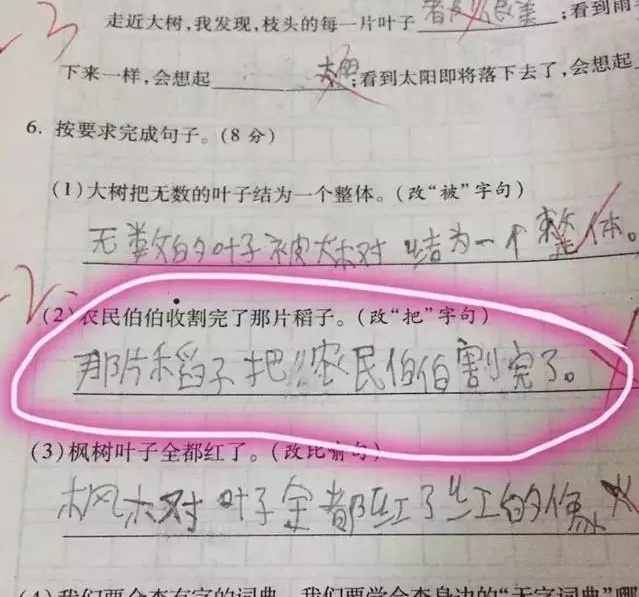 走近大树,我发现,枝头的每一片叶子________;看到雨
下来一样,会想起________;看到太阳即将落下去了,会想起
6. 按要求完成句子。(8分)
(1)大树把无数的叶子结为一个整体。(改“被”字句)
无数的叶子被大树结为一个整体。
(2)农民伯伯收割完了那片稻子。(改“把”字句)
那片稻子把农民伯伯割完了。
(3)枫树叶子全都红了。(改比喻句)
枫树叶子全都红了红的像火